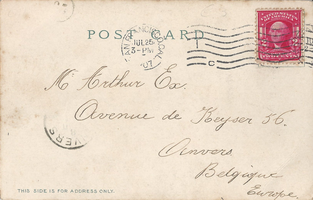 POST CARD
SAN FRANCISCO, CAL.
JUL 26
3-PM
07
C
2 2
Mr Arthur Ex.
Avenue de Keyser 56.
Anvers
Belgique
Europe
VERS
THIS SIDE IS FOR ADDRESS ONLY